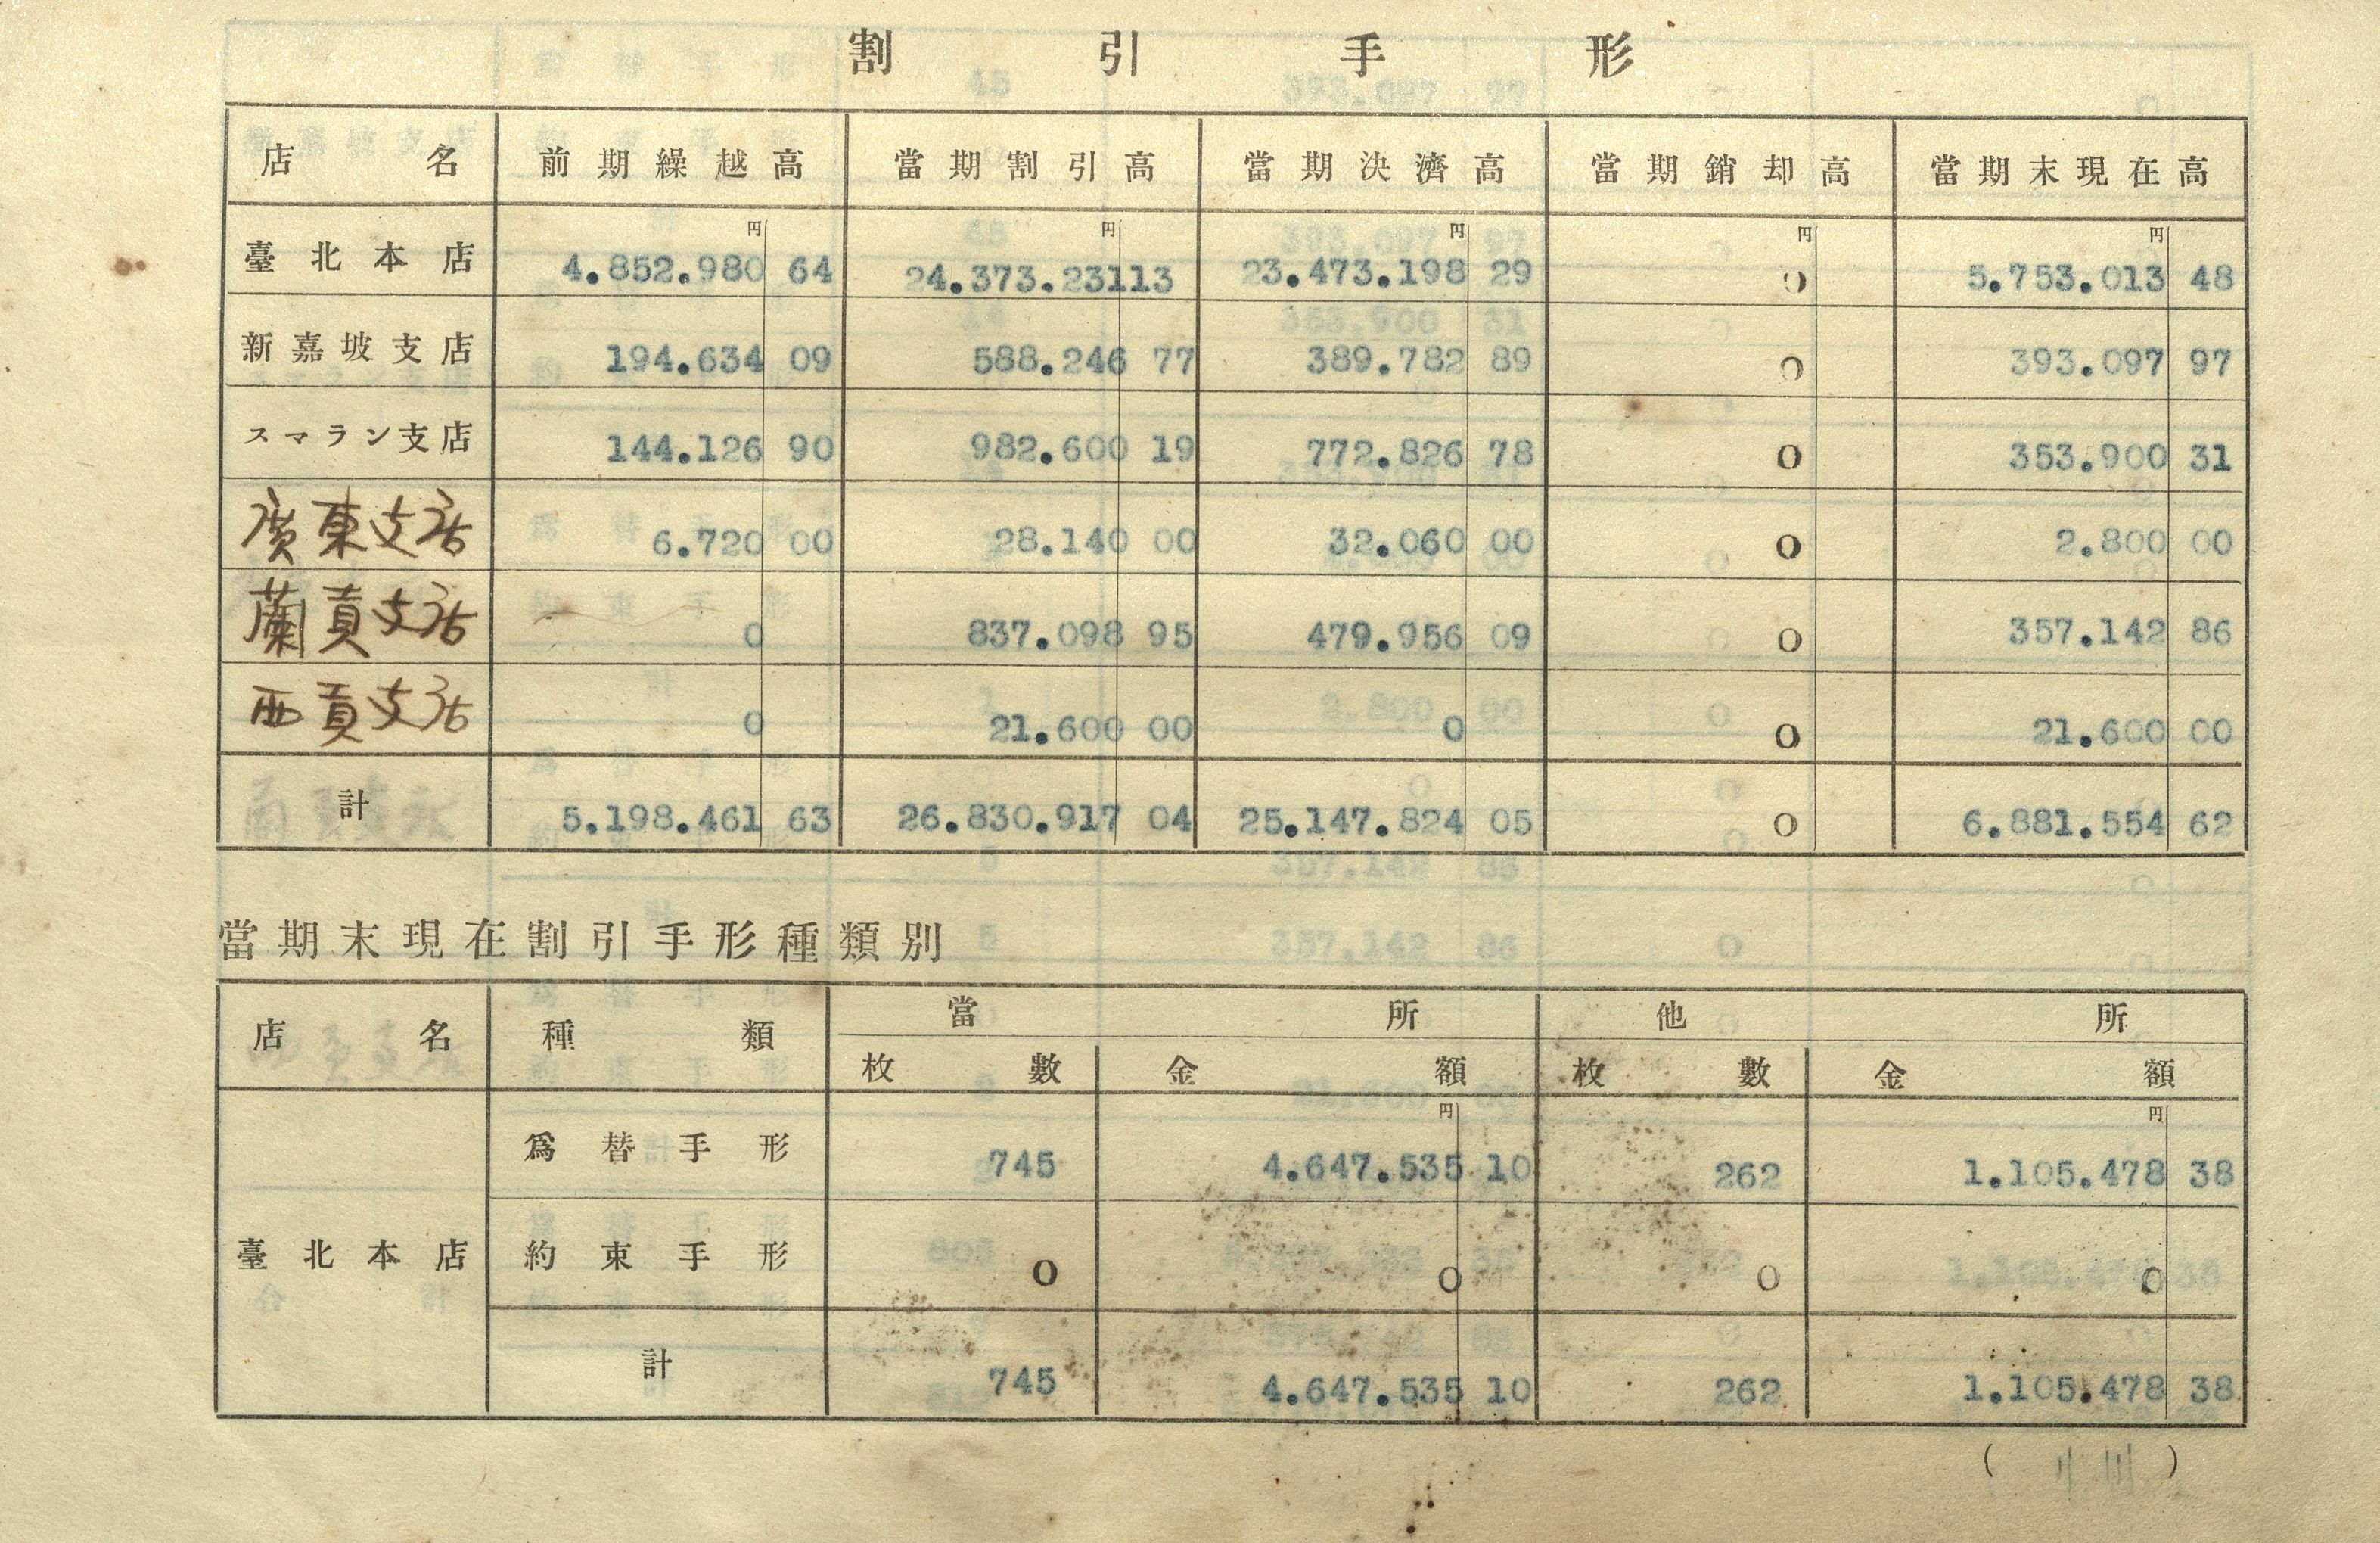 割引手形
店名 前期繰越高 當期割引高 當期決濟高 當期銷却高 當期末現在高
円 円 円 円 円
臺北本店 4.852.980 64 24.373.231 13 23.473.198 29 0 5.753.013 48
新嘉坡支店 194.634 09 588.246 77 389.782 89 0 393.097 97
スマラン支店 144.126 90 982.600 19 772.826 78 0 353.900 31
廣東支店 6.720 00 28.140 00 32.060 00 0 2.800 00
蘭貢支店 0 837.098 95 479.956 09 0 357.142 86
西貢支店 0 21.600 00 0 0 21.600 00
計 5.198.461 63 26.830.917 04 25.147.824 05 0 6.881.554 62
當期末現在割引手形種類別
店名 種類 當所 他所
枚數 金額 枚數 金額
円 円
爲替手形 745 4.647.535 10 262 1.105.478 38
臺北本店 約束手形 0 0 0 0
計 745 4.647.535 10 262 1.105.478 38